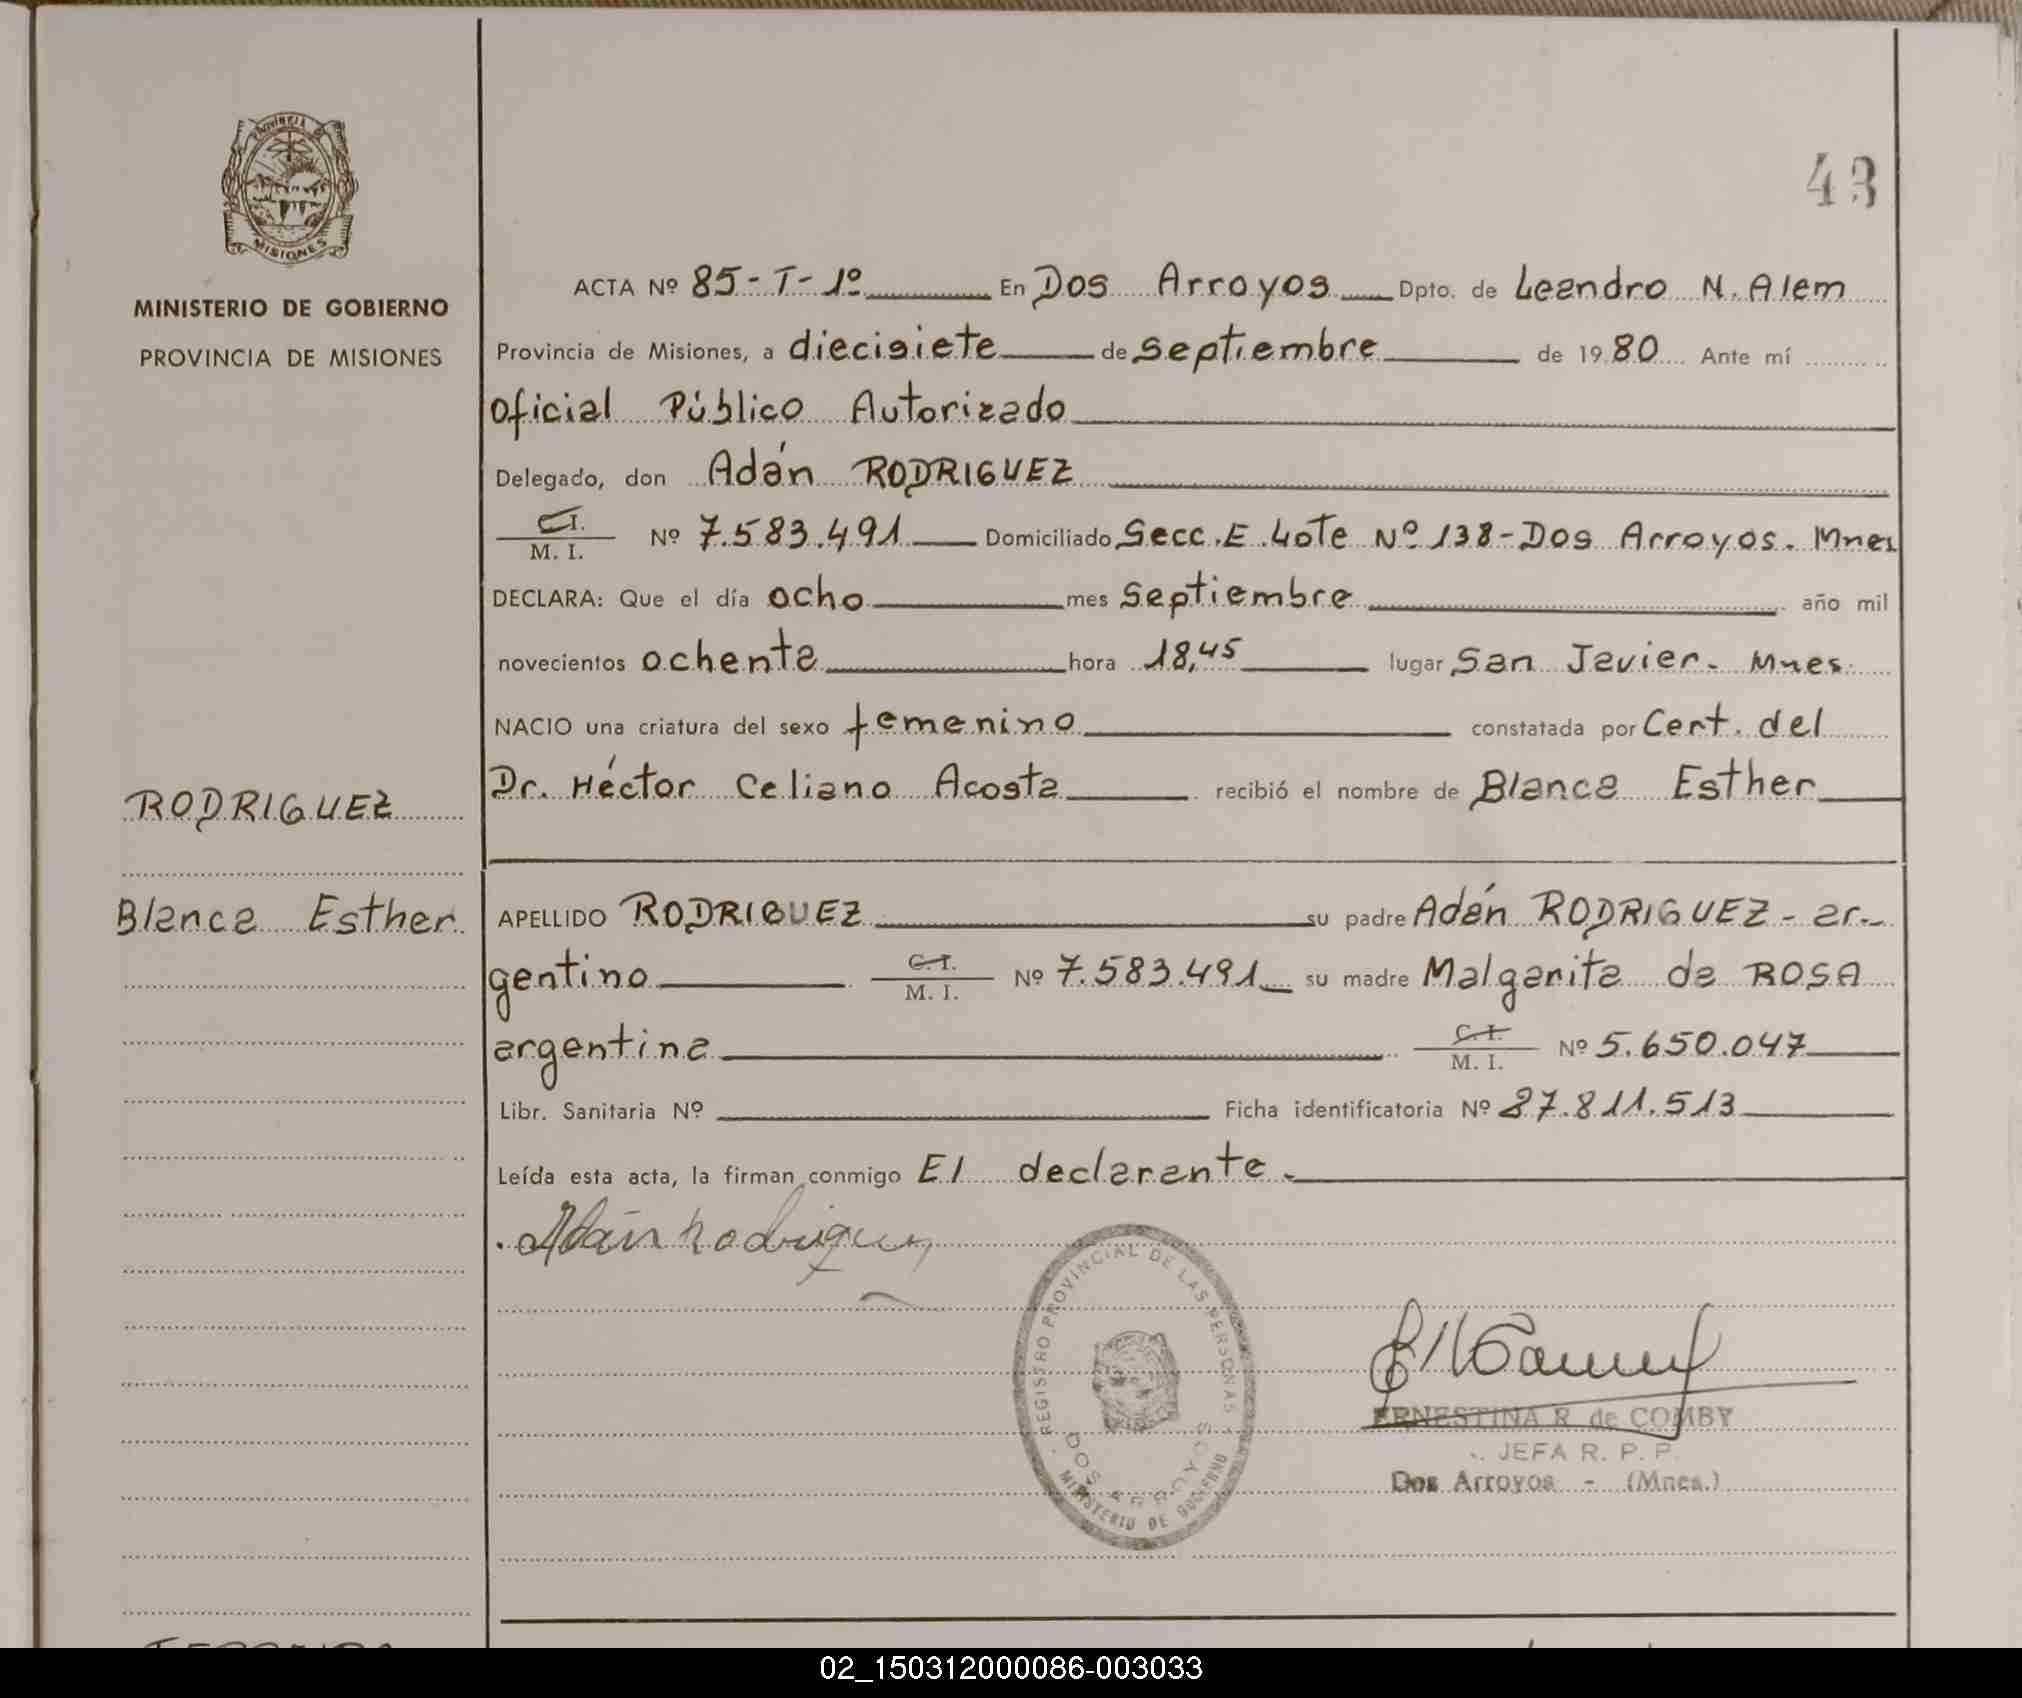 43
PROVINCIA
MISIONES
MINISTERIO DE GOBIERNO
PROVINCIA DE MISIONES
ACTA Nº 85-T-1º En Dos Arroyos Dpto. de Leandro N. Alem
Provincia de Misiones, a diecisiete de septiembre de 1980 Ante mí
Oficial Público Autorizado
Delegado, don Adán RODRIGUEZ
C.I.
M. I. Nº 7.583.491 Domiciliado Secc. E. Lote Nº 138-Dos Arroyos. Mnes
DECLARA: Que el día ocho mes septiembre año mil
novecientos ochenta hora 18,45 lugar San Javier. Mnes.
NACIO una criatura del sexo femenino constatada por Cert. del
Dr. Héctor Celiano Acosta recibió el nombre de Blanca Esther
RODRIGUEZ
Blanca Esther.
APELLIDO RODRIGUEZ su padre Adán RODRIGUEZ - ar-
gentino C.I.
M. I. Nº 7.583.491 su madre Malgarita de ROSA
argentina C.I.
M. I. Nº 5.650.047
Libr. Sanitaria Nº Ficha identificatoria Nº 27.811.513
Leída esta acta, la firman conmigo El declarante.
Adán Rodriguez
REGISTRO PROVINCIAL DE LAS PERSONAS
DOS ARROYOS
MINISTERIO DE GOBIERNO
ERNESTINA R. de COMBY
JEFA R. P. P.
Dos Arroyos - (Mnes.)
02_150312000086-003033